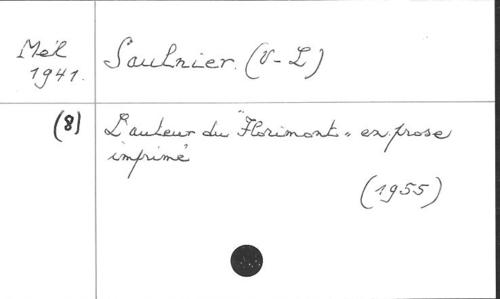 Mél
1941.
Saulnier. (V-L)
(8)
L'auteur du "Florimont" en prose
imprimé
(1955)